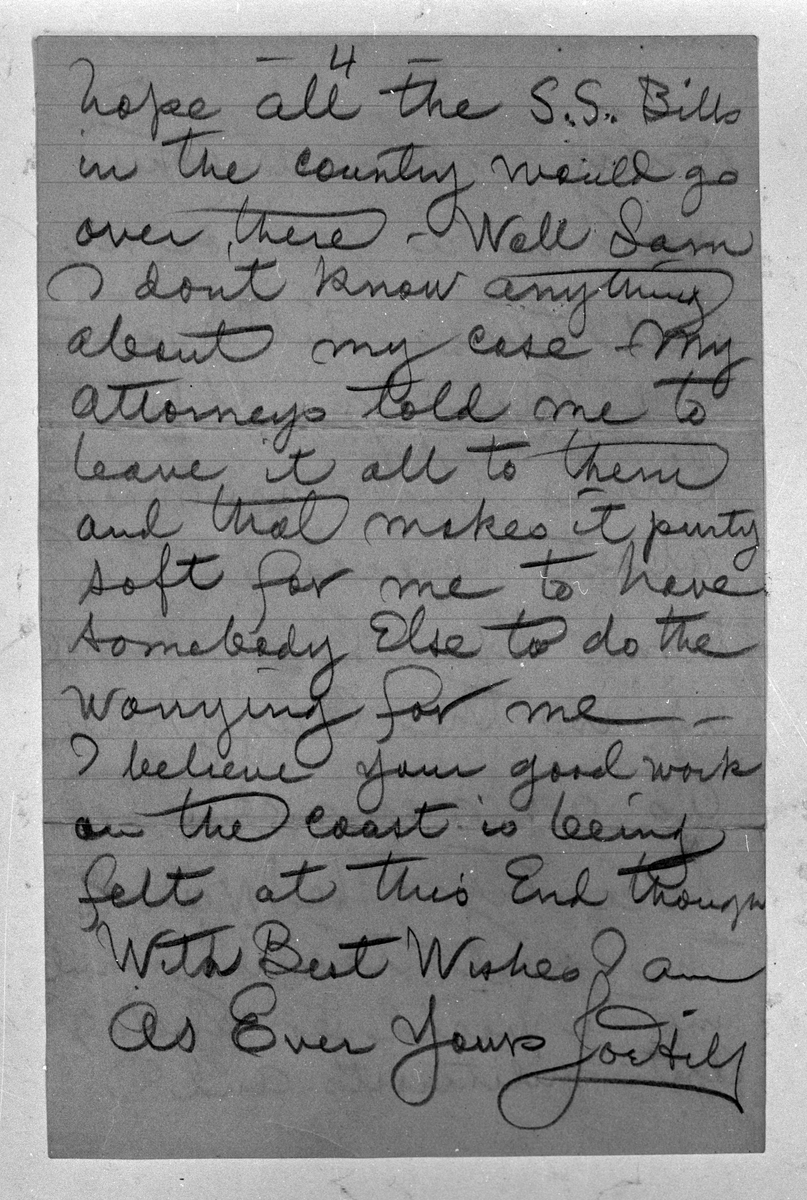 — 4 —
hope all the S.S. Bills
in the country would go
over there - Well Sam
I dont know anything
about my case - My
Attorneys told me to
leave it all to them
and that makes it purty
soft for me to have
somebody Else to do the
worrying for me — –
I believe your good work
on the coast is being
felt at this End though
With Best Wishes I am
As Ever Yours Joe Hill